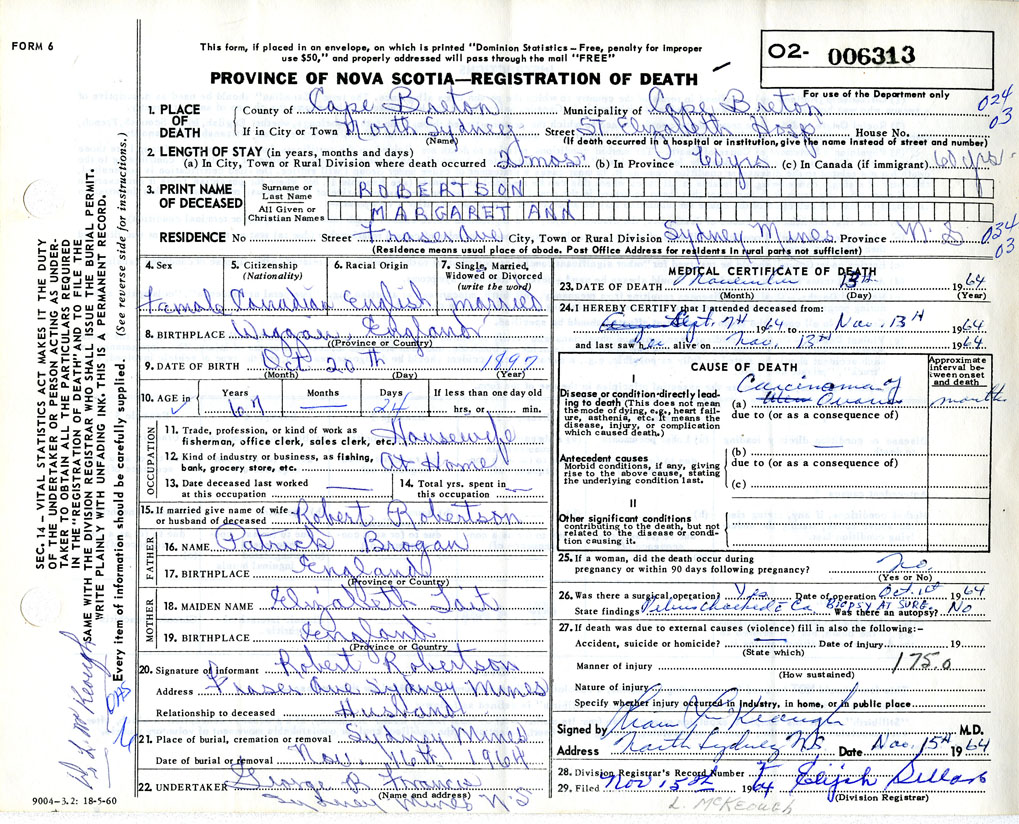 FORM 6
This form, if placed in an envelope, on which is printed "Dominion Statistics – Free, penalty for improper
use $50," and properly addressed will pass through the mail "FREE"
PROVINCE OF NOVA SCOTIA—REGISTRATION OF DEATH
02- 006313
For use of the Department only
024
03
1. PLACE OF DEATH
County of Cape Breton Municipality of Cape Breton
If in City or Town North Sydney Street St Elizabeth Hosp House No.
(Name) (If death occurred in a hospital or institution, give the name instead of street and number)
2. LENGTH OF STAY (in years, months and days)
(a) In City, Town or Rural Division where death occurred 2 mos. (b) In Province 60 yrs (c) In Canada (if immigrant) 60 yrs
3. PRINT NAME OF DECEASED
Surname or Last Name ROBERTSON
All Given or Christian Names MARGARET ANN
RESIDENCE No Street Fraser Ave City, Town or Rural Division Sydney Mines Province N.S.
034
03
(Residence means usual place of abode. Post Office Address for residents in rural parts not sufficient)
4. Sex 5. Citizenship (Nationality) 6. Racial Origin 7. Single, Married, Widowed or Divorced (write the word)
Female Canadian English Married
8. BIRTHPLACE Wiggan England
(Province or Country)
9. DATE OF BIRTH Oct 20th 1897
(Month) (Day) (Year)
10. AGE in Years Months Days If less than one day old
67 — 24 hrs. or min.
OCCUPATION
11. Trade, profession, or kind of work as fisherman, office clerk, sales clerk, etc. Housewife
12. Kind of industry or business, as fishing, bank, grocery store, etc. At Home
13. Date deceased last worked at this occupation — 14. Total yrs. spent in this occupation —
15. If married give name of wife or husband of deceased Robert Robertson
FATHER
16. NAME Patrick Brogan
17. BIRTHPLACE England
(Province or Country)
MOTHER
18. MAIDEN NAME Elizabeth Tait
19. BIRTHPLACE England
(Province or Country
20. Signature of informant Robert Robertson
Address Fraser Ave Sydney Mines
Relationship to deceased Husband
21. Place of burial, cremation or removal Sydney Mines
Date of burial or removal Nov. 16th 1964
22. UNDERTAKER George R Francis
(Name and address)
Sydney Mines N.S
9004–3.2: 18-5-60
MEDICAL CERTIFICATE OF DEATH
23. DATE OF DEATH November 13th 1964
(Month) (Day) (Year)
24. I HEREBY CERTIFY that I attended deceased from:
Sept. 7th 1964 to Nov. 13th 1964
and last saw her alive on Nov. 13th 1964.
CAUSE OF DEATH
Approximate interval between onset and death
I
Disease or condition directly leading to death (This does not mean the mode of dying, e.g., heart failure, asthenia, etc. It means the disease, injury, or complication which caused death.)
(a) Carcinoma of Ovaries month
due to (or as a consequence of)
Antecedent causes
Morbid conditions, if any, giving rise to the above cause, stating the underlying condition last.
(b) —
due to (or as a consequence of)
(c)
II
Other significant conditions
contributing to the death, but not related to the disease or condition causing it.
25. If a woman, did the death occur during
pregnancy or within 90 days following pregnancy? No.
(Yes or No)
26. Was there a surgical operation? Yes Date of operation Oct. 1st 1964
State findings Ca. BIOPSY AT SURG. Was there an autopsy? NO
27. If death was due to external causes (violence) fill in also the following:—
Accident, suicide or homicide? — Date 19
(State which)
Manner of injury 175.0
(How sustained)
Nature of injury
Specify whether injury occurred in industry, in home, or in public place
Signed by M.D.
Address North Sydney NS Date Nov. 15th 1964
28. Division Registrar's Record Number
29. Filed Nov 15th 1964 Elijah Sellars
(Division Registrar)
L. McKEOUGH
SEC. 14 – VITAL STATISTICS ACT MAKES IT THE DUTY
OF THE UNDERTAKER OR PERSON ACTING AS UNDERTAKER
TO OBTAIN ALL THE PARTICULARS REQUIRED
IN THE "REGISTRATION OF DEATH" AND TO FILE THE
SAME WITH THE DIVISION REGISTRAR WHO SHALL ISSUE THE BURIAL PERMIT.
WRITE PLAINLY WITH UNFADING INK. THIS IS A PERMANENT RECORD.
Every item of information should be carefully supplied. (See reverse side for instructions.)
L McKeough